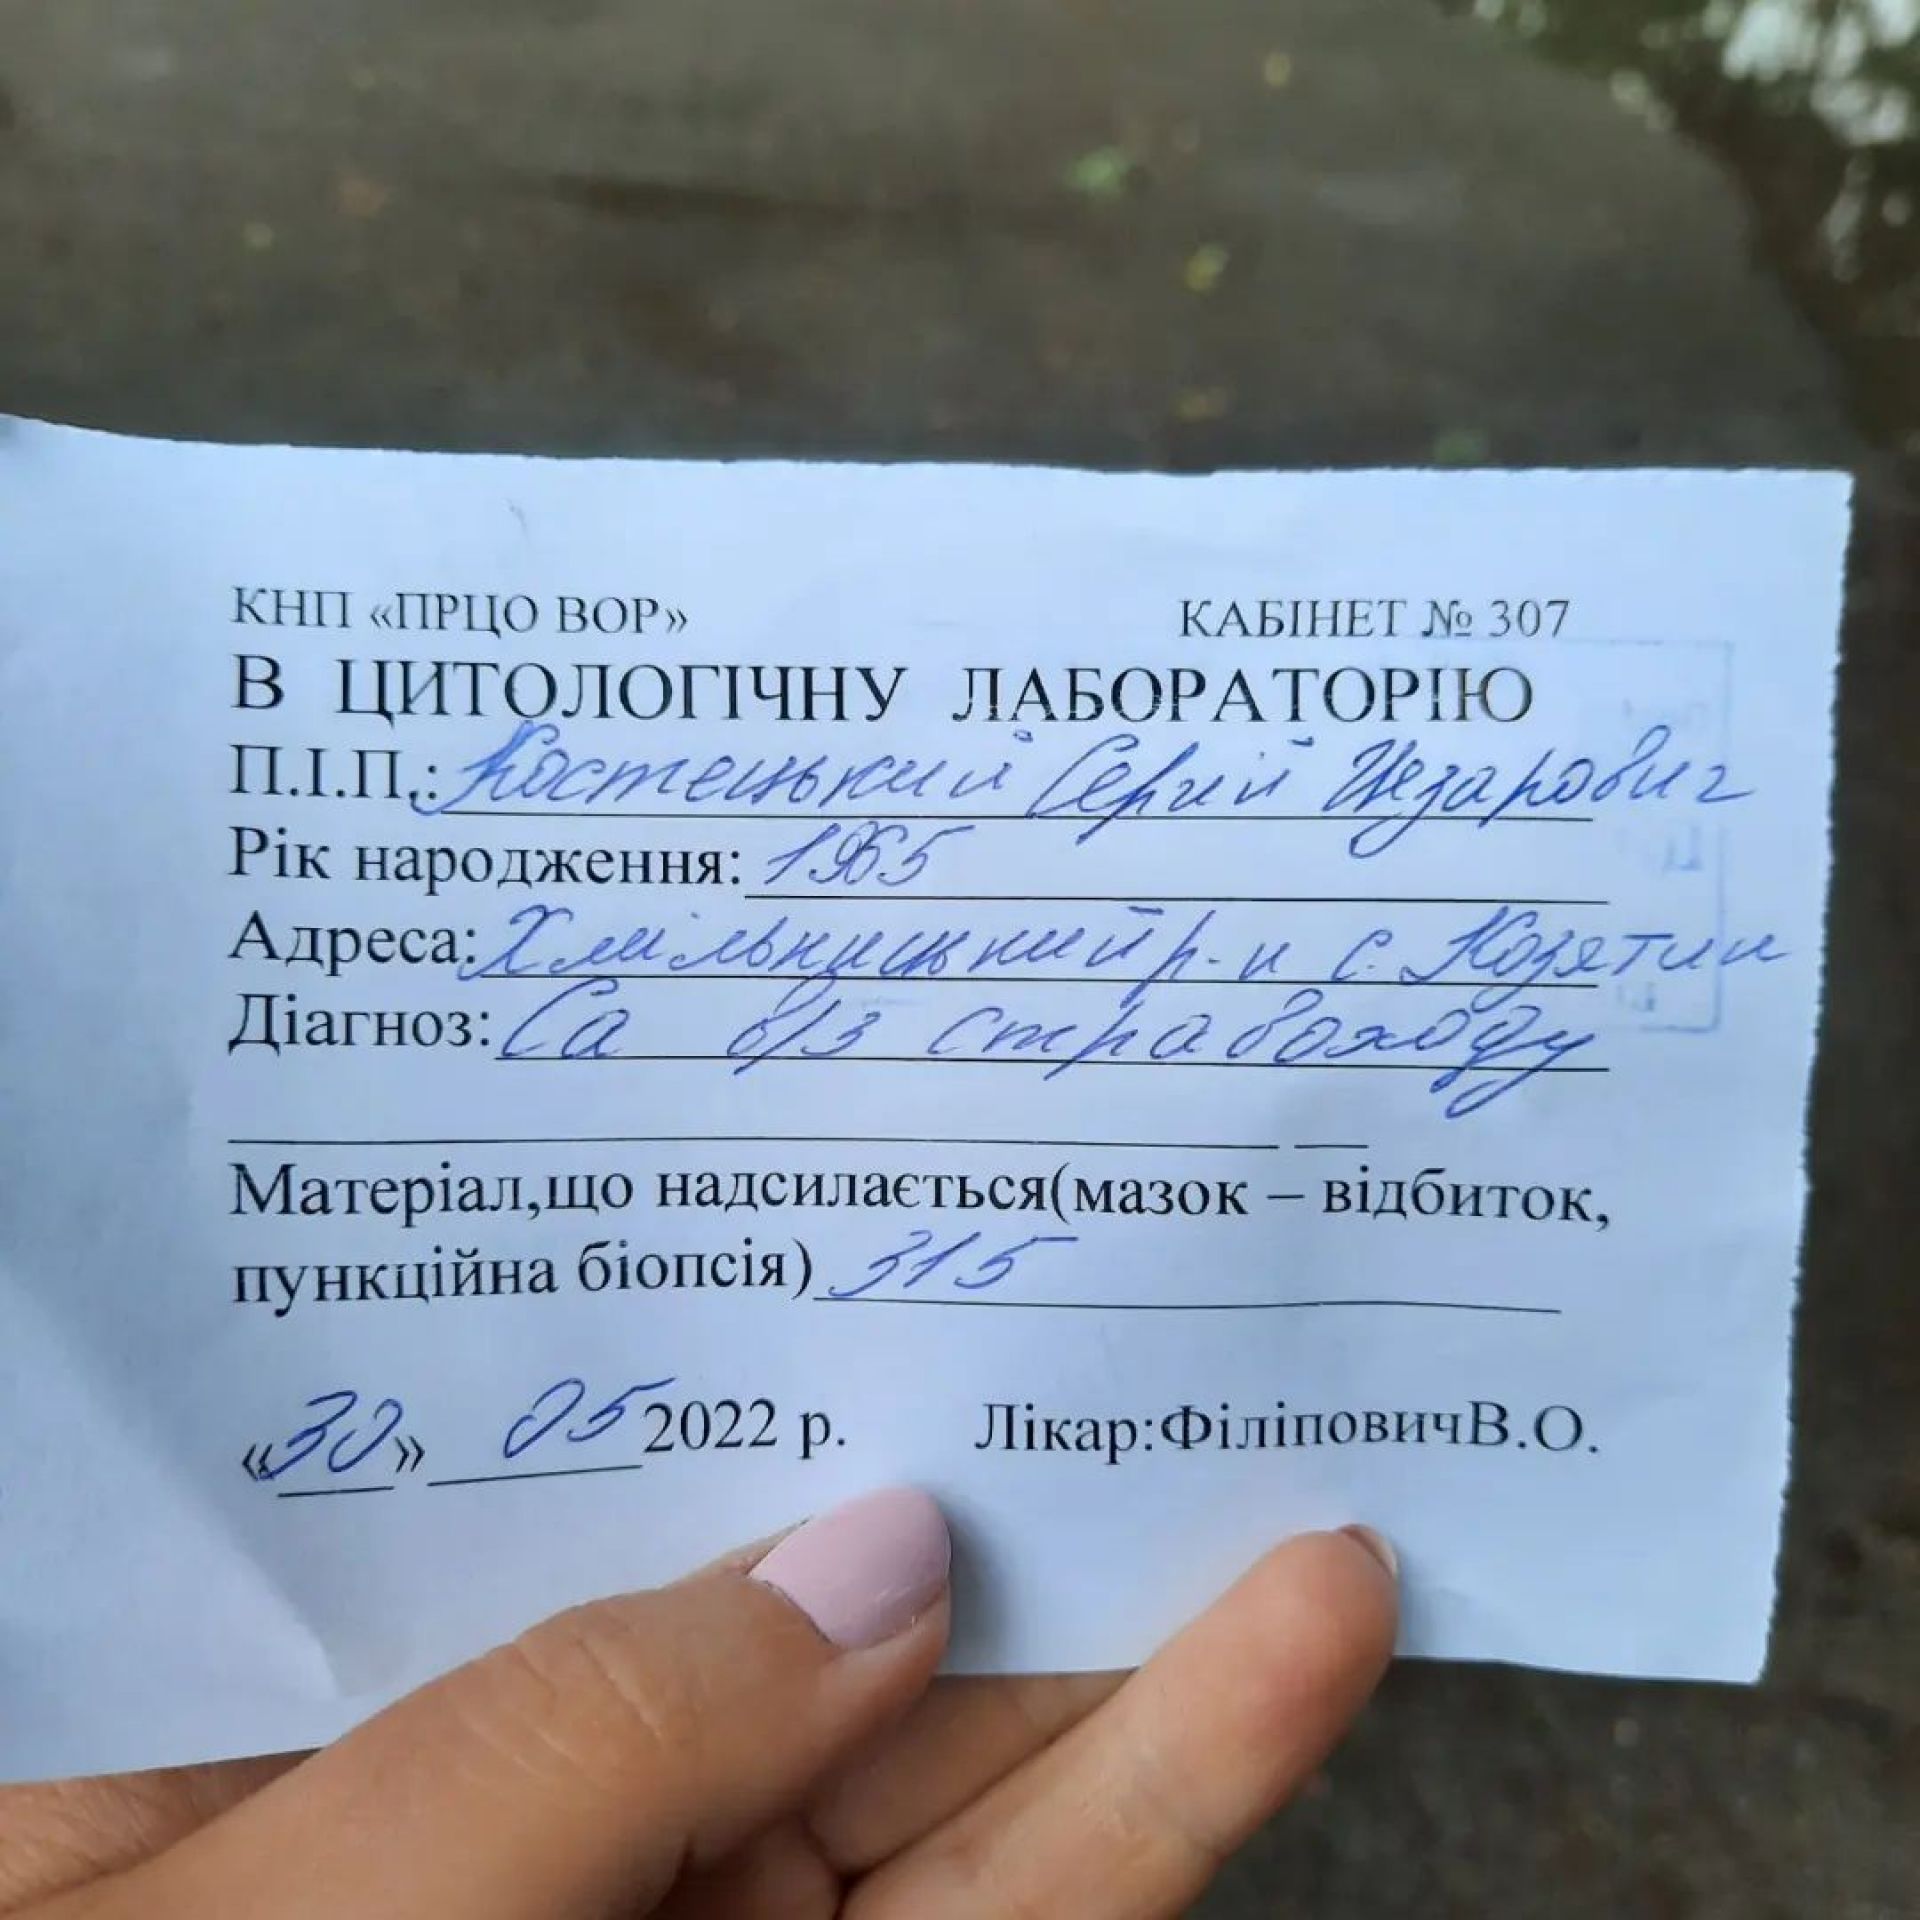 КНП «ПРЦО ВОР» КАБІНЕТ № 307
В ЦИТОЛОГІЧНУ ЛАБОРАТОРІЮ
П.І.П.: Костецький Сергій Цезарович
Рік народження: 1965
Адреса: Хмільницький р-н с. Козятин
Діагноз: Са в/з стравоходу
Матеріал,що надсилається(мазок – відбиток,
пункційна біопсія) 315
«30» 05 2022 р. Лікар:ФіліповичВ.О.